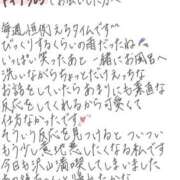 毎週恒例えちタイムです
びっくりするくらいの雨だったね
いっぱい笑ったあと一緒にお風呂へ
洗いながらちょっとだけえっちな
お話をしていたら あまりにも素直な
反応をしてくれるから可愛くて
仕方なかったです
そういう反応を見つけると ついつい
もう少し意地悪したくなる私です
今日も沢山満喫してしまいました